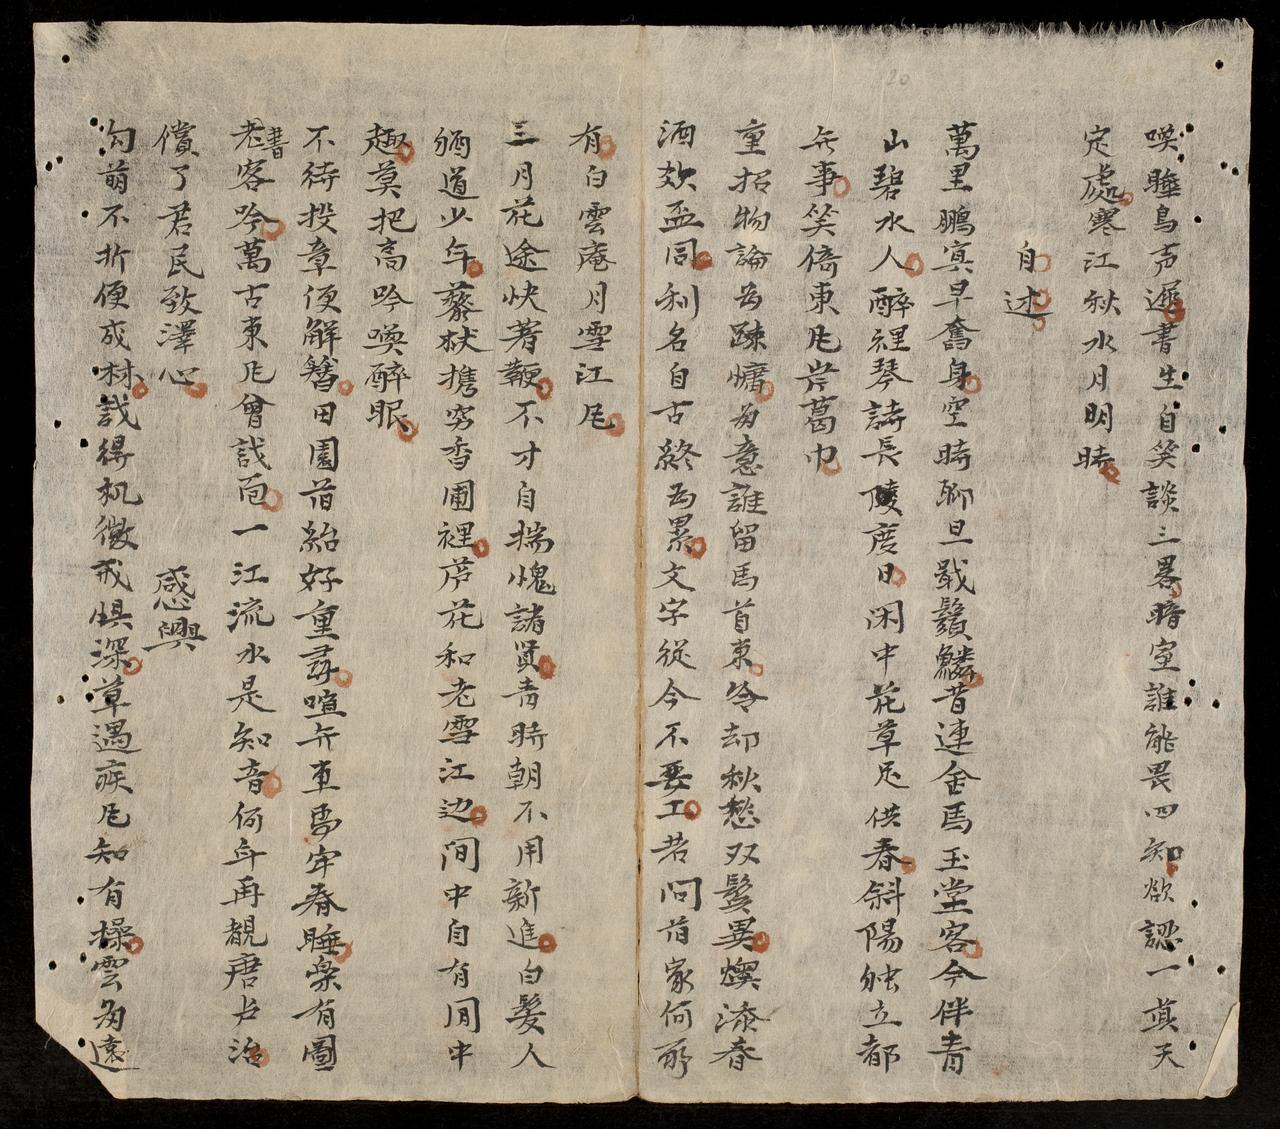 喚睡鳥声遲書生自笑談三畧暗室誰能畏四知欲認一真天
定處寒江秋水月明時
自述
萬里鵬㝠早奮身空時聊且戢鬚鱗昔連金馬玉堂客今伴青
山碧水人醉裡琴詩長度日閑中花草足供春斜陽独立都
無事笑倚東風岸葛巾
重招物論為踈慵勿意誰留馬首東冷却秋愁双鬂異燠添春
酒欬盃同利名自古終為累文字從今不要工若問首家何所
有白雲庵月雪江風
三月花途快著鞭不才自揣愧諸賢青時朝不用新進白髮人
稱道少年藜杖携窮香圃裡芦花和老雪江边閒中自有閒中
趣莫把高吟喚醉眠
不待投章便解簪田園首紿好重尋喧無車馬牢春睡楽有圖
書老客吟萬古東風曾識面一江流水是知音何年再覩唐虞治
償了君民致澤心
感興
勾萌不折便成林識得机微戒惧深草遇疾風知有操雲勿遠